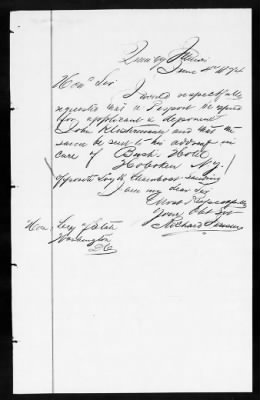 Quincy Illinois
June 4th 1874
Hon Sir
I would respectfully
request that a Passport be
for applicant & deponent
John and that the
same be sent to his address in
care of Busch Hotel
Hoboken N.J.
opposite Steamboat Landing
I am my dear Sir
Most Respectfully
Your Obt Svt
Richard
Hon Secy of State
Washington
D.C.